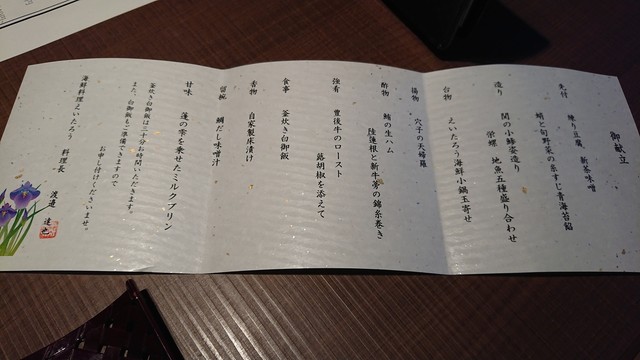 御献立
先付 練り豆腐、新茶味噌
蛸と旬野菜の糸すじ青海苔餡
造り 関の小鯵姿造り
栄螺 地魚五種盛り合わせ
台物 えいたろう海鮮小鍋玉寄せ
揚物 穴子の天婦羅
酢物 鱧の生ハム
陸蓮根と新牛蒡の錦糸巻き
強肴 豊後牛のロースト
蕗胡椒を添えて
食事 釜炊き白御飯
香物 自家製床漬け
留椀 鯛だし味噌汁
甘味 蓬の雫を乗せたミルクプリン
釜炊き白御飯は三十分お時間いただきます。
また、白御飯もご準備できますので
お申し付けくださいませ。
海鮮料理えいたろう 料理長 渡邉